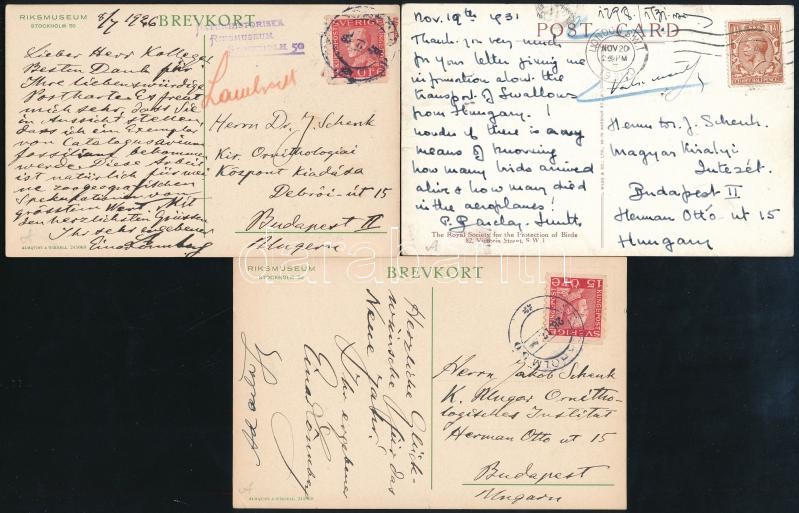 RIKSMUSEUM
STOCKHOLM 50
BREVKORT
8/7 1926
RIKSMUSEUM
50
SVERIGE
ÖRE
Lambrecht
Lieber Herr Kollege!
Besten Dank für
Ihre liebenswürdige
Postkarte. Es freut
mich sehr, dass Sie
in Aussicht stellen,
dass ich ein Exemplar
von Catalogus avium
fossilium bekommen
werde. Diese Arbeit
ist natürlich für mei
ne zoogeografischen
Spekulationen von
grösstem Wert. Mit
den herzlichsten Grüssen
Ihr sehr ergebener
Einar Lönnberg
Herrn Dr. J. Schenk
Kir. Ornithologiai
Központ Kiadása
Debrői-út 15
Budapest II
Ungern
ALMQVIST & WIKSELL
POST CARD
Nov. 19th 1931
Thank you very much
for your letter giving me
information about the
transport of Swallows
from Hungary. I
wonder if there is any
means of knowing
how many birds arrived
alive & how many died
in the aeroplanes!
P. Barclay-Smith
The Royal Society for the Protection of Birds
82, Victoria Street, S.W.1
NOV 20
Herrn J. Schenk.
Magyar Királyi
Intezét.
Budapest II
Herman Otto ut 15
Hungary
RIKSMUSEUM
STOCKHOLM 50
BREVKORT
15 ÖRE
SVERIGE
Herzliche Glück-
wünsche für das
Neue Jahr!
Ihr ergebener
Einar Lönnberg
Herrn Jakob Schenk
K. Ungar Ornitho-
logisches Institut
Herman Otto ut 15
Budapest
Ungarn
ALMQVIST & WIKSELL